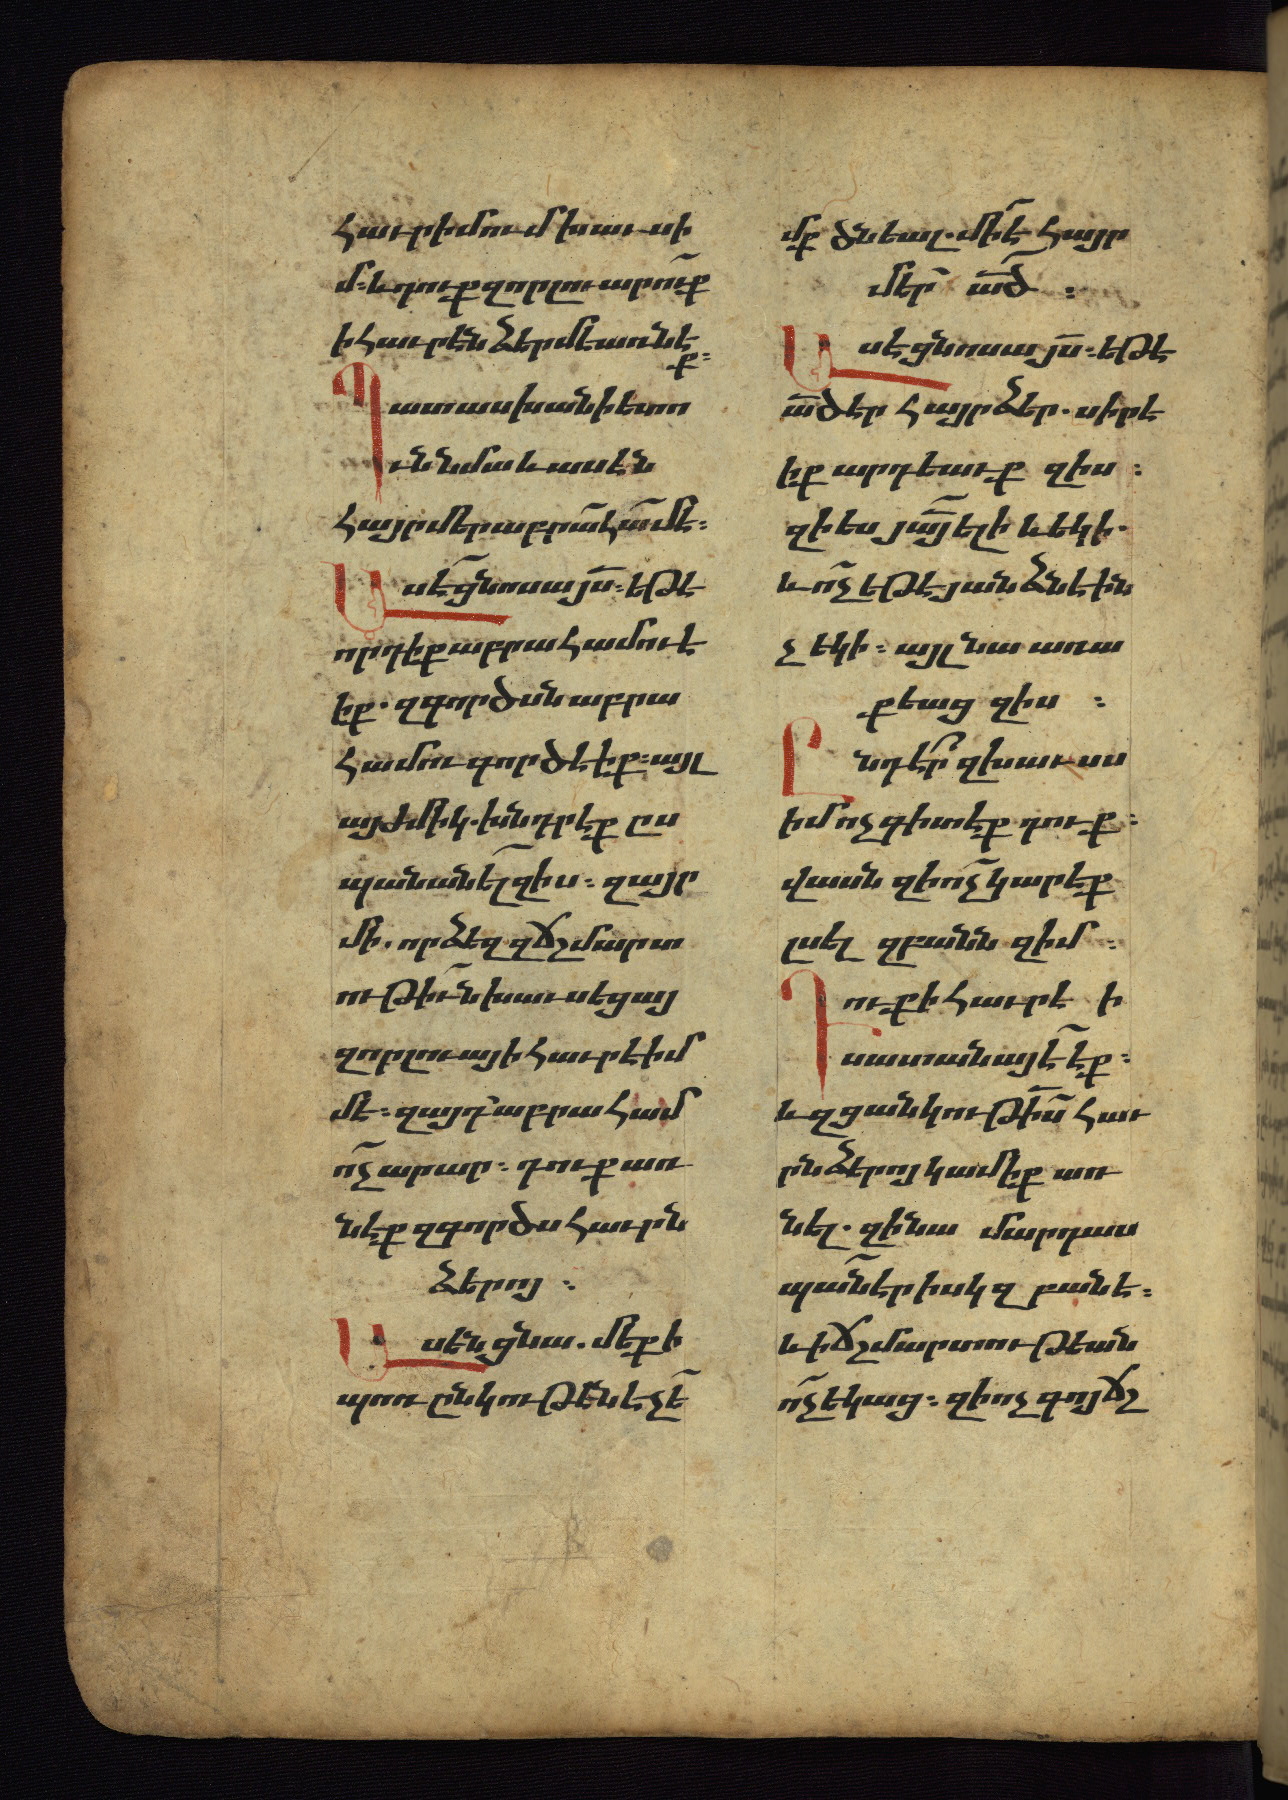 հաւր իմում խաւսի
մ։ և դուք զոր լուարո՜ւք
ի հաւրէն ձերմէ առնէ
ք։
Պատասխանի ետո
ւն նմա և ասէն
հայր մեր աբրա՜հա՜մ է։
Ասէ ց՜նոսա յս՜։ եթէ
որդիք աբրահամու է
իք. զգործսն աբրա
համու գործէիք։ այլ
այժմիկ. խնդրէք ըս
պանանե՜լ զիս։ զայր
մի. որ ձեզ զճշմարտ
ութի՜ւն խաւսեցայ
զոր լուայ ի հաւրէ իմ
մէ։ զայդ աբրահամ
ո՜չ արար։ դուք առ
նէք զգործս հաւրն
ձերոյ։
Ասէն ցնա. մեք ի
պոռընկութե՜նէ չե՜
մք ծնեալ. մի է՜ հայր
մեր՜ ա՜ծ։
Ասէ ցնոսա յս՜։ եթէ
ա՜ծ էր հայր ձեր. սիրէ
իք արդեաւք զիս։
զի ես յա՜յ ելի և եկի.
և ո՜չ եթէ յանձնէ ին
չ եկի։ այլ նա առա
քեաց զիս։
Ընդէ՜ր զխաւսս
իմ ոչ գիտէք դուք։
վասն զի ո՜չ կարէք
լսել զբանն զիմ։
Դուք ի հաւրէ ի
սատանայէ է՜ք։
և զցանկութի՜ս հաւ
րն ձերոյ կամիք առ
նել. զի նա մարդաս
պա՜ն էր իսկզբանէ։
և ի ճշմարտութեան
ո՜չ եկաց։ զի ոչ գոյ ճշ